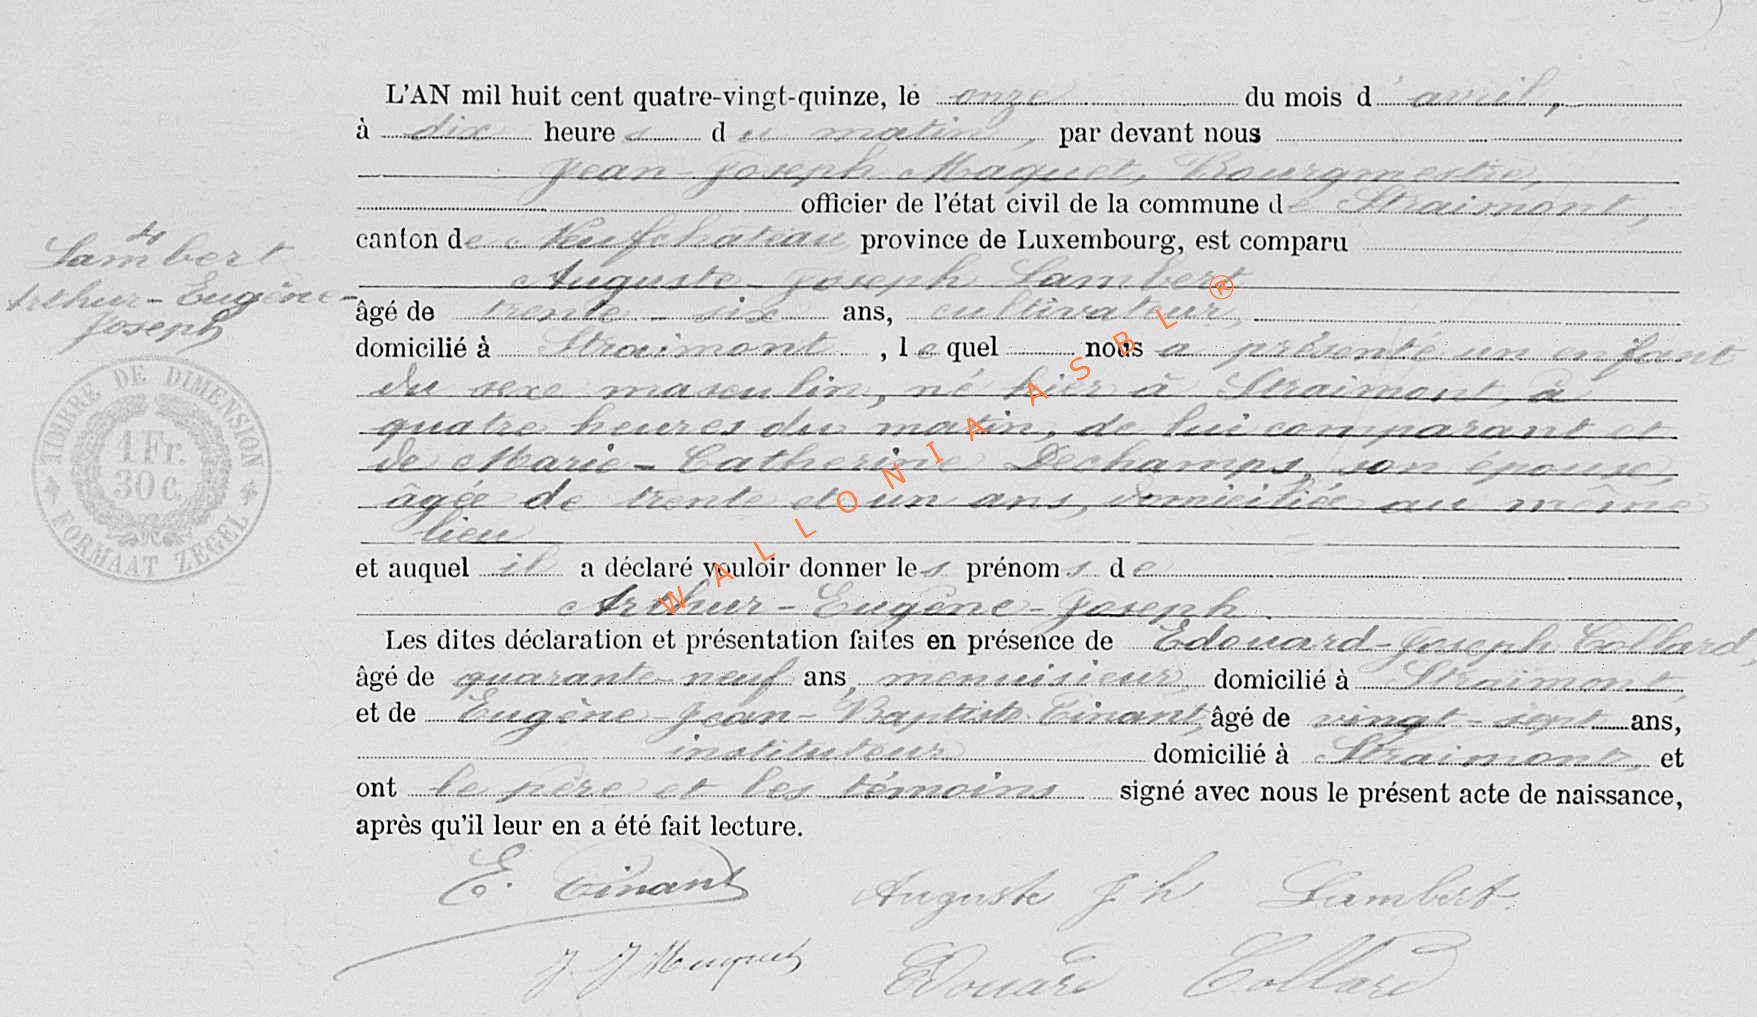 L'AN mil huit cent quatre-vingt-quinze, le onze du mois d'avril,
à dix heures du matin, par devant nous
Jean-Joseph Maquet, Bourgmestre,
officier de l'état civil de la commune de Straimont,
canton de Neufchateau province de Luxembourg, est comparu
Auguste-Joseph Lambert
âgé de trente-six ans, cultivateur,
domicilié à Straimont, lequel nous a présenté un enfant
du sexe masculin, né hier à Straimont, à
quatre heures du matin, de lui comparant et
de Marie-Catherine Dechamps, son épouse,
âgée de trente et un ans, domiciliée au même
lieu
et auquel il a déclaré vouloir donner les prénoms de
Arthur-Eugène-Joseph.
Les dites déclaration et présentation faites en présence de Edouard-Joseph Collard,
âgé de quarante-neuf ans, menuisier, domicilié à Straimont,
et de Eugène-Jean-Baptiste Tinant, âgé de vingt-sept ans,
instituteur domicilié à Straimont, et
ont le père et les témoins signé avec nous le présent acte de naissance,
après qu'il leur en a été fait lecture.
E. Tinant Auguste Jh Lambert.
J. J Maquet Edouard Collard
Lambert
Arthur-Eugène-
Joseph
TIMBRE DE DIMENSION
1 Fr.
30 c.
FORMAAT ZEGEL
WALLONIA ASBL ®